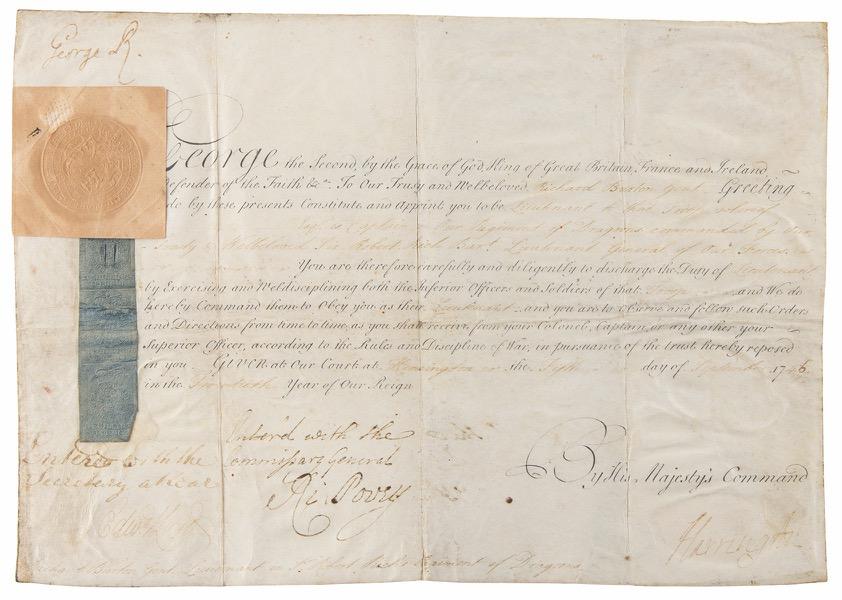 George R.
George the Second, by the Grace of God, King of Great Britain, France and Ireland
Defender of the Faith &c. To Our Trusty and Welbeloved Richard Burton Gent Greeting
do by these presents Constitute and Appoint you to be Lieutenant to that Troop whereof
Esq. is Captain in Our Regiment of Dragoons commanded by Our
Trusty & Welbeloved Sir Robert Rich Bart. Lieutenant General of Our Forces
You are therefore carefully and diligently to discharge the Duty of Lieutenant
by Exercising and Weldisciplining both the Inferior Officers and Soldiers of that Troop and We do
hereby Command them to Obey you as their Lieutenant and you are to observe and follow such Orders
and Directions from time to time, as you shall receive from your Colonel, Captain, or any other your
Superior Officer, according to the Rules and Discipline of War, in pursuance of the trust hereby reposed
in you. Given at Our Court at Kensington the day of September 1746
in the Twentieth Year of Our Reign
Enter'd with the
Commissary General
Ri: Povey
Entered with the
Secretary at War
Edw Lloyd
By His Majesty's Command
Harrington
Burton Gent. Lieutenant in Sr. Robert Rich's Regiment of Dragoons